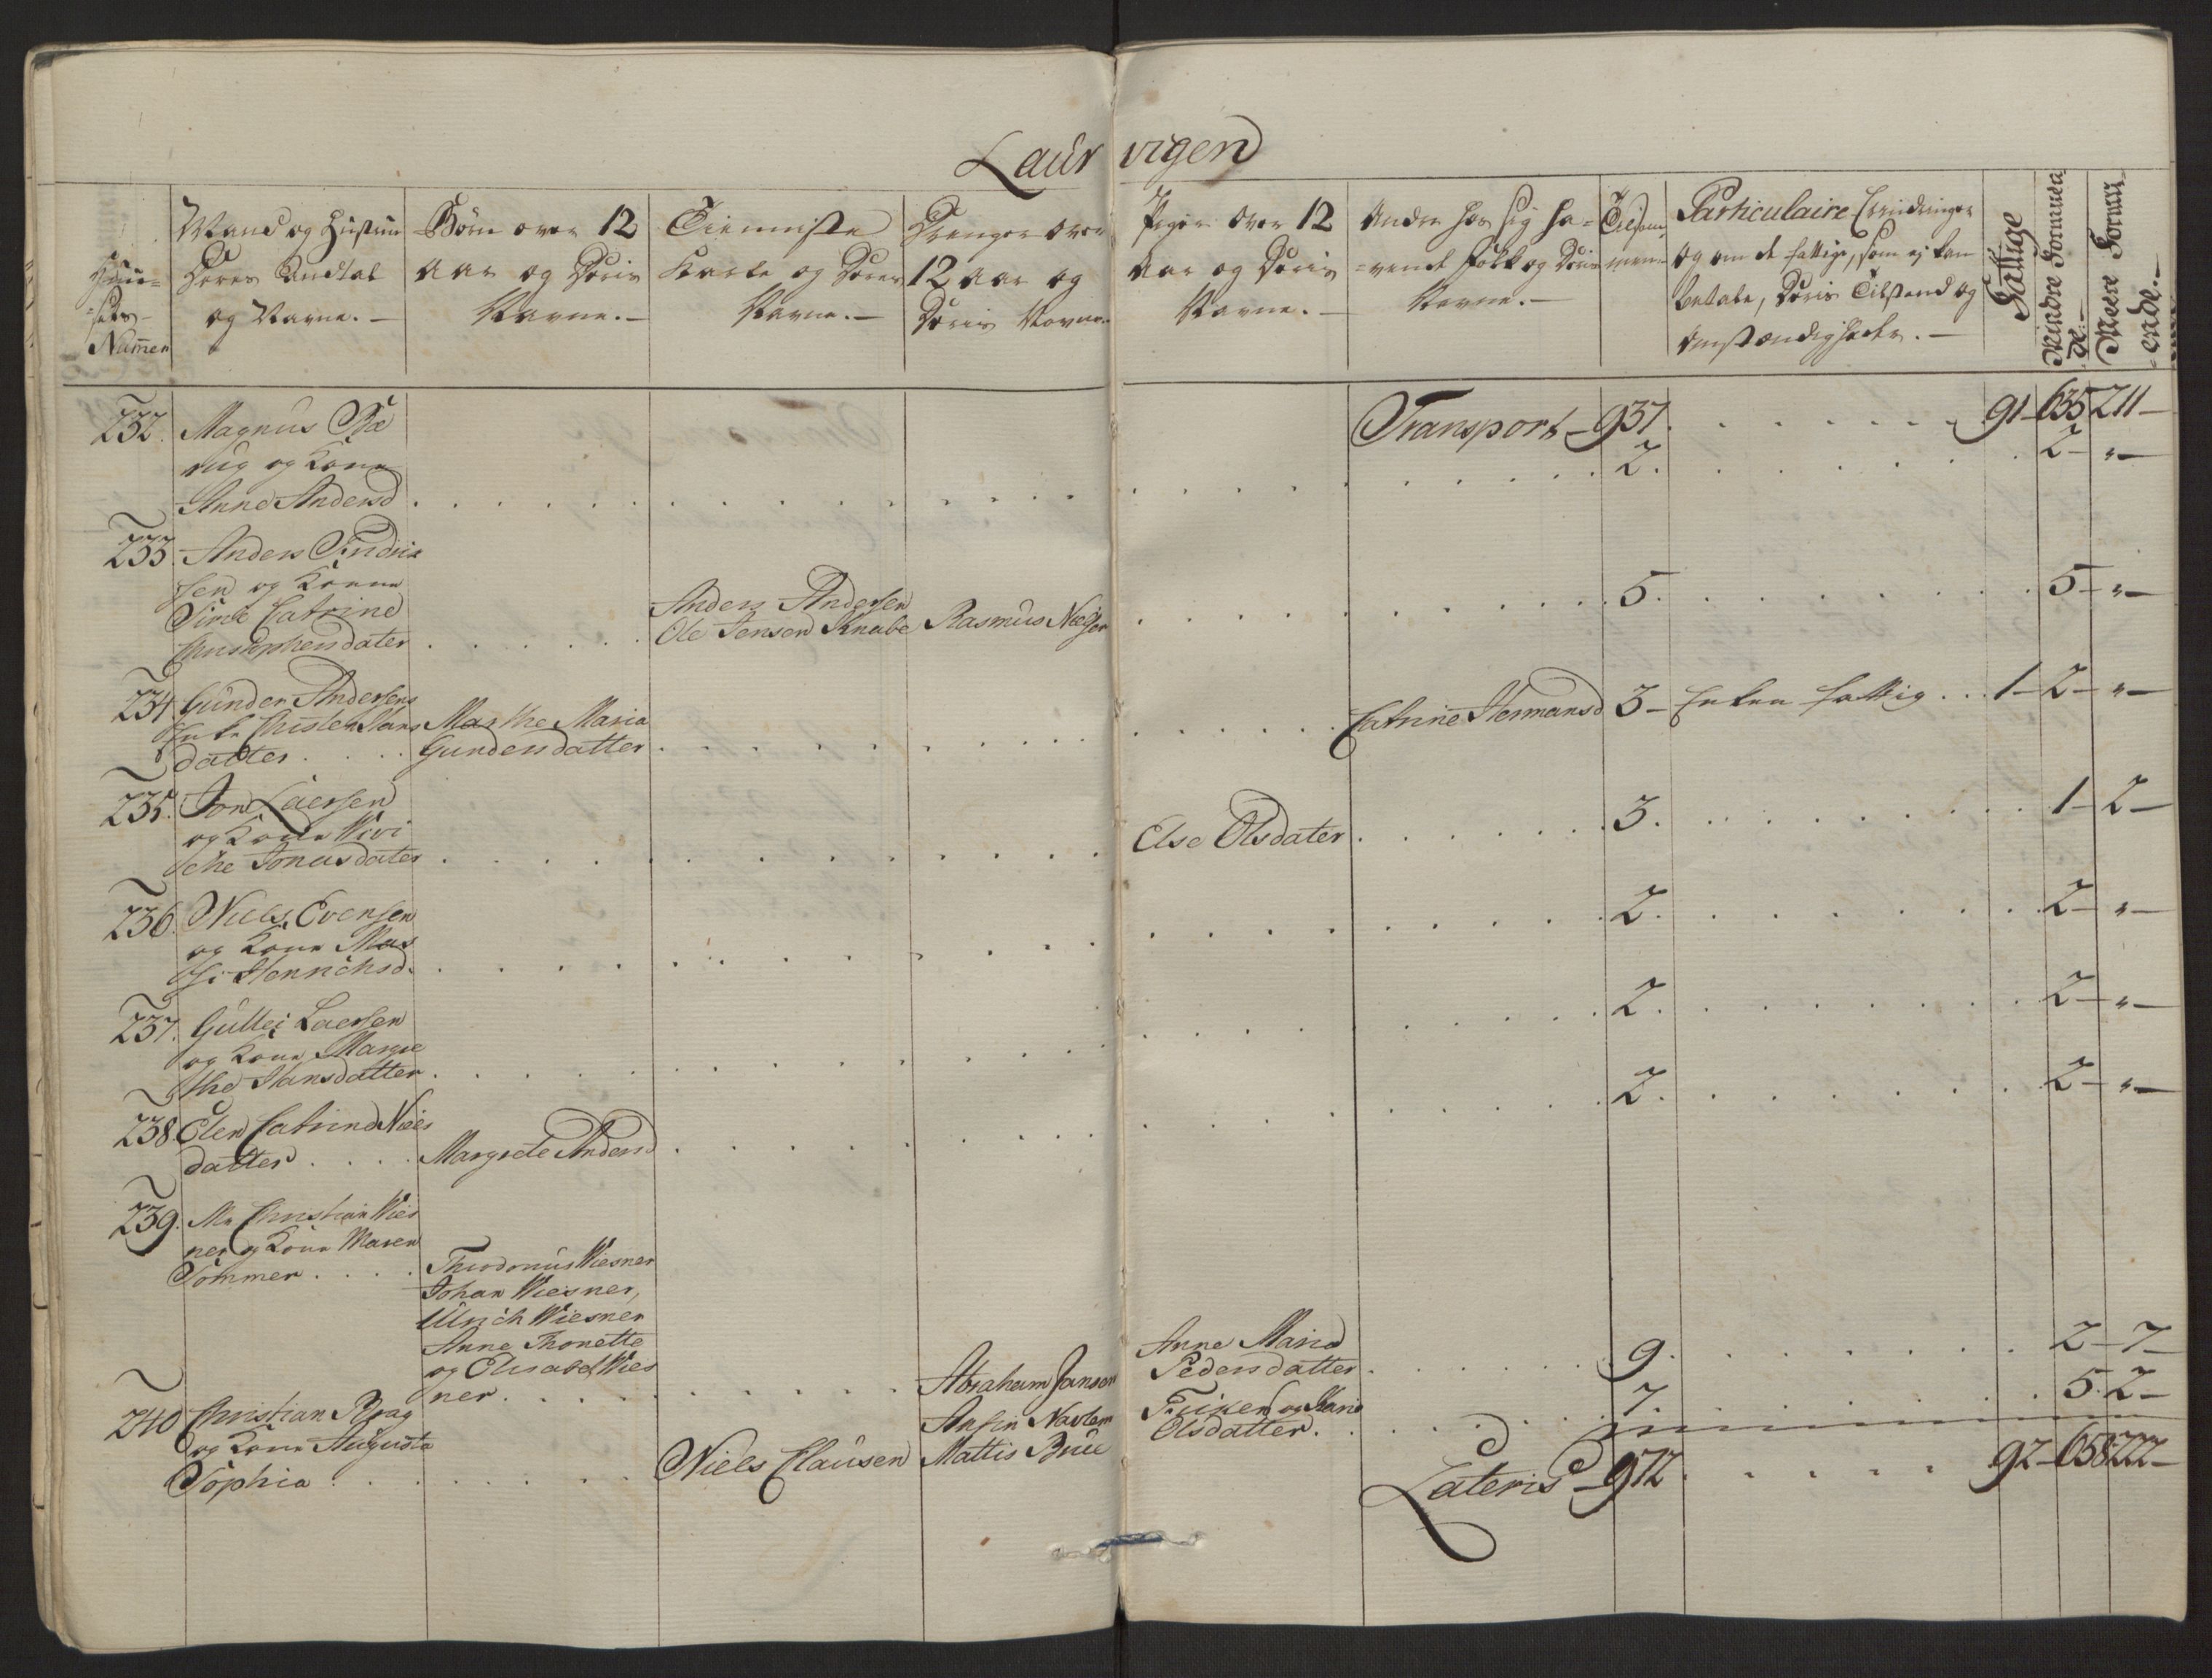 Laurvigen
Huu-
sets
Numer
Mand og Hustrue
Deres Andtal
og Navne.
Børn over 12
Aar og Deris
Navne.
Tienniste
Karle og Deres
Navne.
Drenger over
12 Aar og
Deris Navne
Piger over 12
Aar og Deris
Navne.
Andre hos sig ha-
vende folk og Deris
Navne.
Tilsam-
men
Particulaire Erindringer
og om de fattige, som ej kan
betale, Deris Tilstand og
Omstændigheder.
Fattige
Mindre Formuen
de
Meere Formu
ende.
Transport 937. 91 635 211
232. Magnus Bæ
rug og Kone
Anne Andersd
2. 2 "
233. Anders Findri
sen og Konne
Sine Catrine
Christophersdater
Anders Andersen
Ole Jensen Knabe
Rasmus Nielsen
5. 5 "
234. Gunder Andersens
Enke Christen Hans
datter
Marthe Maria
Gundersdatter
Catrine Hermansd 3 Enken fattig 1 2 "
235. Jon Laersen
og Kone Wivi
che Jonasdater
Else Olsdater
3. 1 2
236. Niels Evensen
og Kone Mas
si Henrichsd.
2. 2 "
237. Gullei Laersen
og Kone Margre
the Hansdatter
2. 2 "
238. Elen Catrine Niels
datter
Margrete Andersd
2. 2 "
239. Mr Christian Wies
ner og Kone Maren
Sommer
Theodorus Wiesner
Johan Wiesner,
Ulrich Wiesner
Anne Thonette
og Elisabet Wies
ner
Abraham Jansen
Anne Maria
Pedersdatter
9. 2 7
240 Christian Brag
og Kone Augusta
Sophia
Niels Clausen
Anfin Navlem
Mattis Brue
Fricken og Karie
Olsdatter.
7. 5. 2
Lateris 972 92 658 222